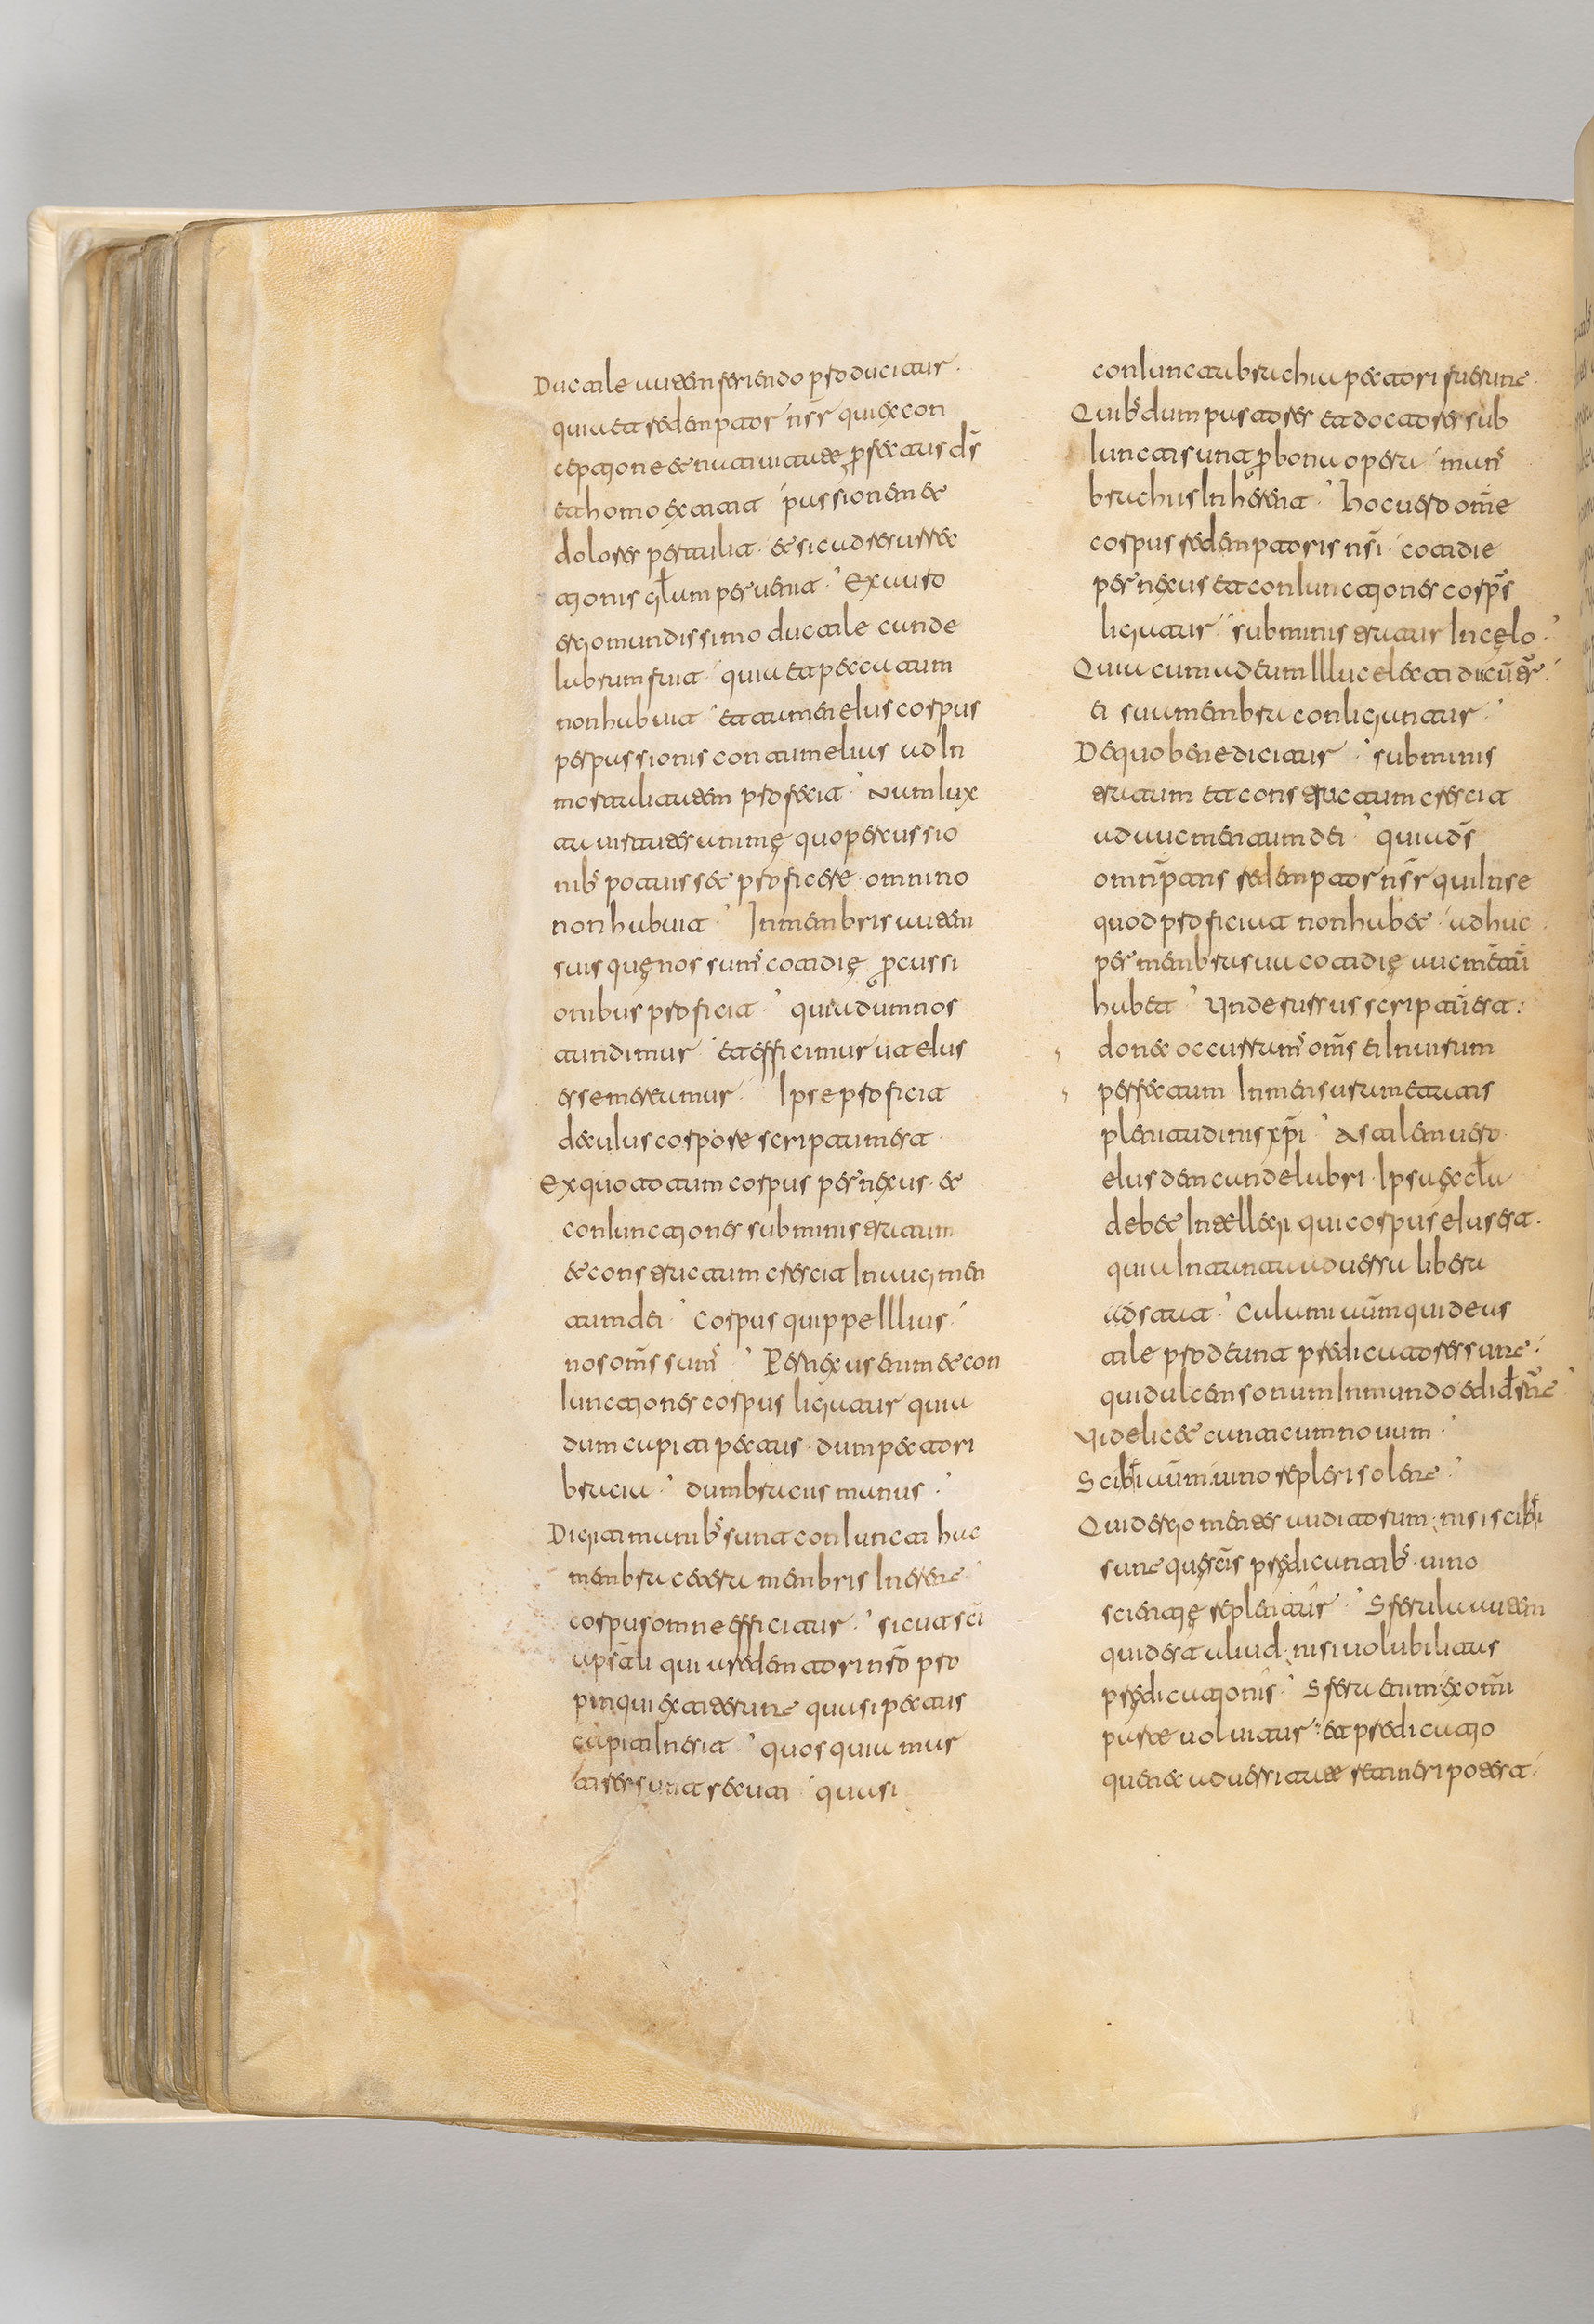 Ductile autem feriendo producitur.
quia et redemptor nsr̄ qui ex con
ceptione et natiuitate p̱fectus ds̄
et homo extitit passionem et
dolores pertulit. et sic ad resurrec
tionis głam peruenit. Ex auro
ergo mundissimo ductile cande
labrum fuit quia et peccatum
non habuit. et tamen eius corpus
per passionis contumelias ad In
mortalitatem profecit. Nam Iux
ta uirtutes anime̜ quo percussio
nibꝰ potuisset proficere. omnino
non habuit. In membris autem
suis que̜ nos sumꝰ cotidie̜ p̱cussi
onibus proficit. quia dum nos
tundimur et efficimur ut eius
esse mereamur. Ipse proficit
de cuius corpore scriptum est.
Ex quo totum corpus per nexus. et
coniunctiones subministratum
et constructum crescit In augmen
tum dei. Corpus quippe Illius
nos oms̄ sumꝰ. Per nexus enim et con
iunctiones corpus ligatur quia
dum capiti pectus. dum pectori
bracia. dum bracis manus.
Digiti manibꝰ sunt coniuncti hac
membra cetera membris Inerent
corpus omne efficitur. sicut sc̄i
apsłi qui a redemtori nsō pro
pinqui extiterunt quasi pectus
capiti Inesit. quos quia mar
tires sunt secuti quasi
coniuncta brachia pectori fuerunt.
Quibꝰ dum pastores et doctores sub
iuncti sunt p̱ bona opera manꝰ
brachiis Inherent. Hoc uero om̄e
corpus redemptoris nsī. cotidie
per nexus et coniunctiones corprs̄
ligatur. subministratur In ce̜lo.
Quia cum ad eum Illuc electi ducūtr̄.
ei sua membra conligantur.
De quo bene dicitur. subminis
tratum et constructum crescit
ad aucmentum dei. quia ds̄
omnp̄tns redemptor nsr̄ qui In se
quod proficiat non habet. adhuc
per membra sua cotidie̜ aucmētū
habet. Unde rursus scriptū est:
donec occurramꝰ oms̄ ei In uirum
perfectum. In mensuram etatis
plenitudinis xpī. Astilem uero
eiusdem candelabri. Ipsa ecła
debet Intellegi qui corpus eius est.
quia Inter tanta aduersa libera
adstat. Culumi aūm qui de as
tile prodeunt predicatores sunt.
qui dulcem sonum In mundo ediderūt
Videlicet canticum nouum.
Scifi aūm. uino repleri solent.
Quid ergo mentes auditorum. nisi scifi
sunt que̜ rc̄is pre̜dicantibꝰ. uino
scientie̜ replentur. Sferula autem
quid est aliud. nisi uolubilitas
pre̜dicationis. Sfera enim ex om̄i
parte uoluitur. et predicatio
quen ec aduersitate retineri potest.